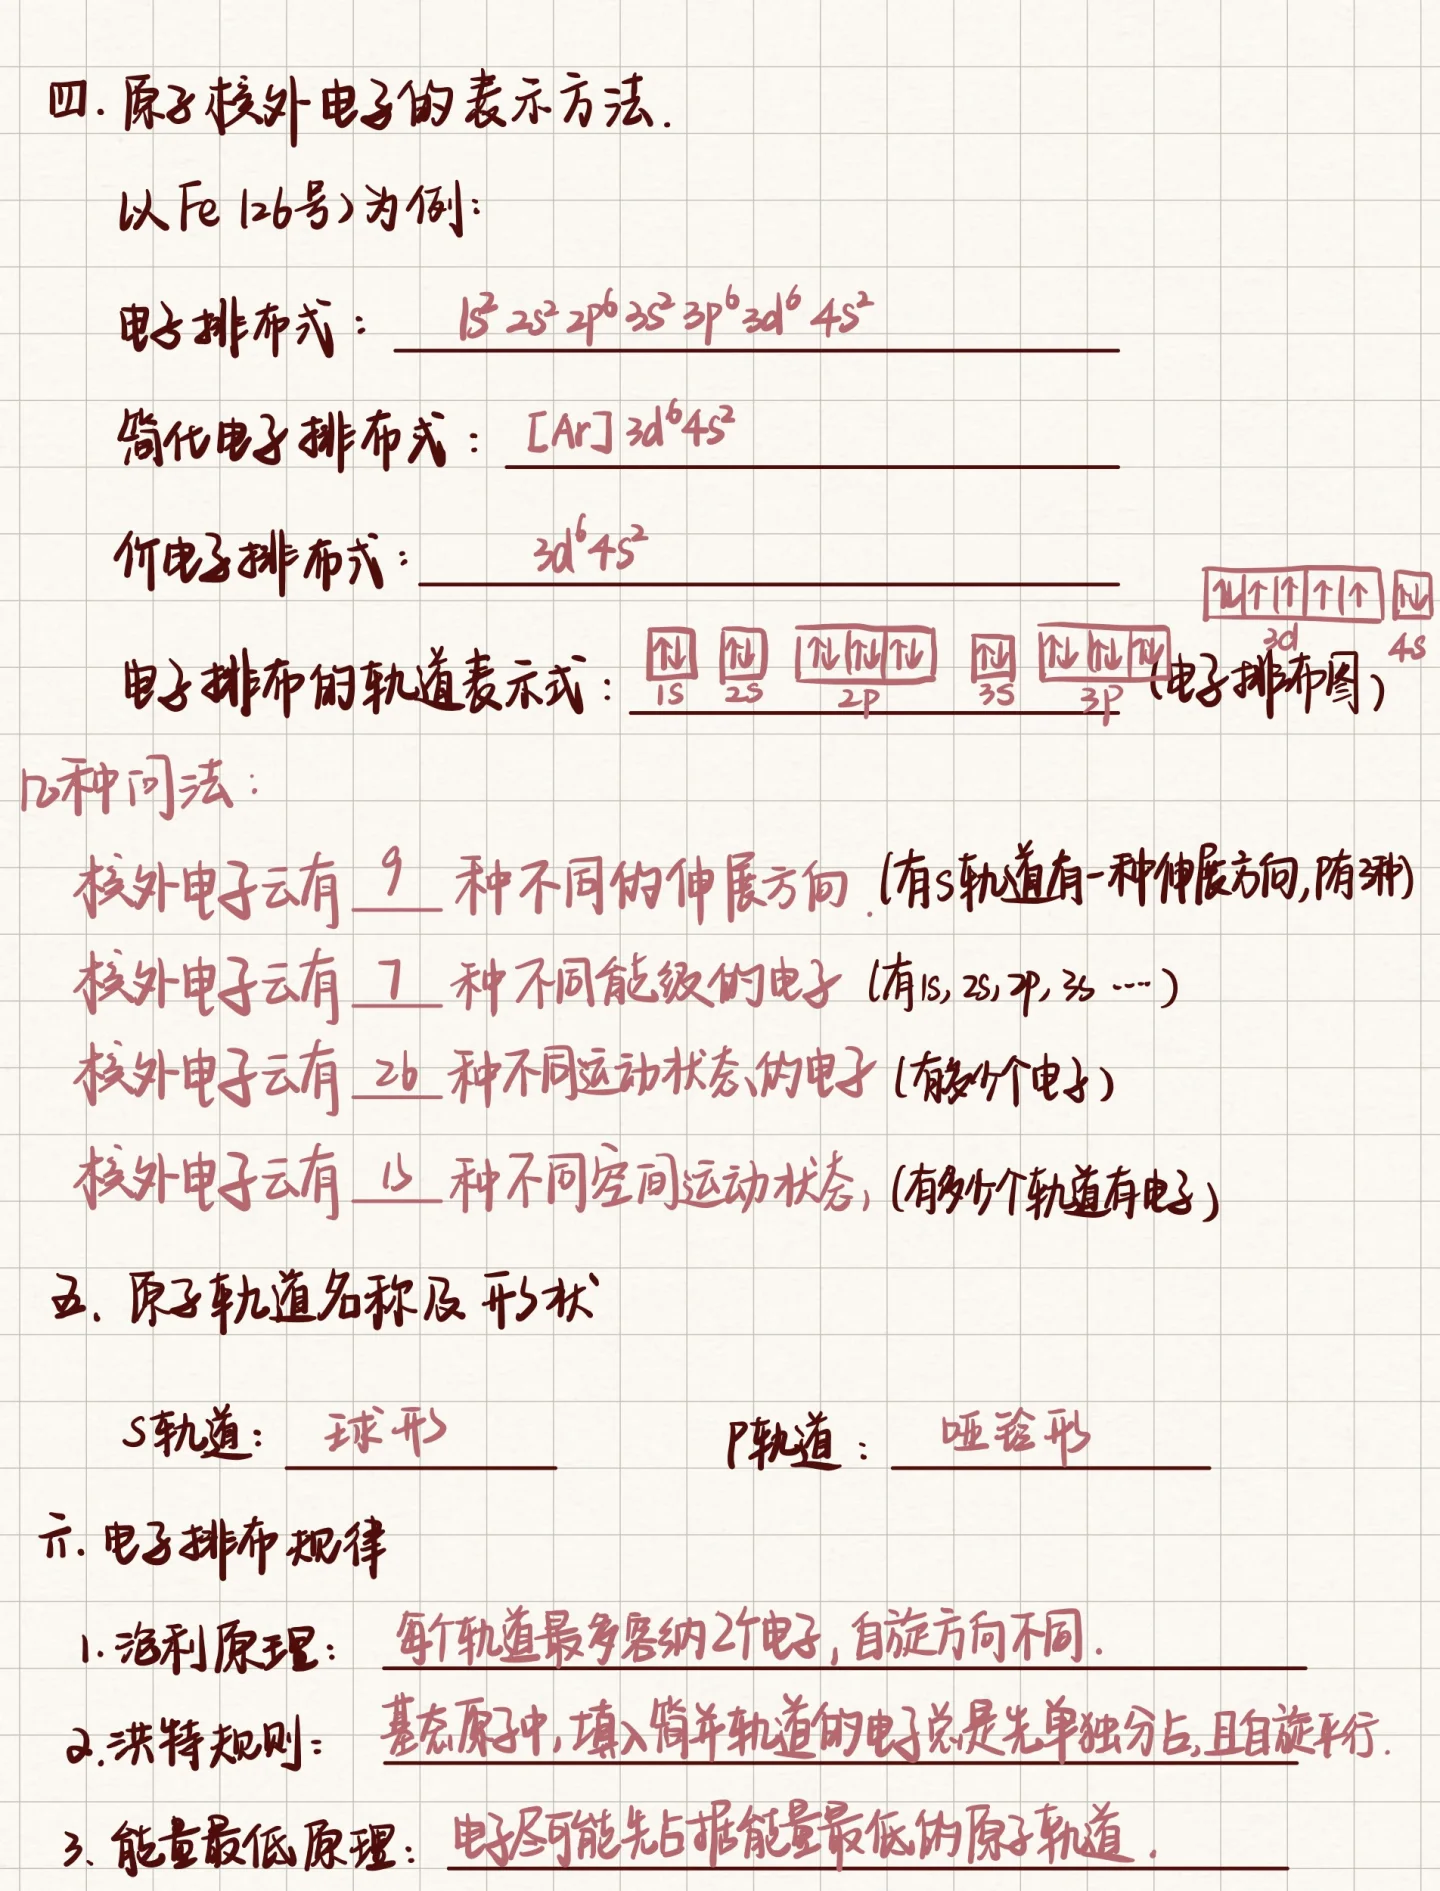 四. 原子核外电子的表示方法.
以Fe(26号)为例:
电子排布式: 1s² 2s² 2p⁶ 3s² 3p⁶ 3d⁶ 4s²
简化电子排布式: [Ar] 3d⁶4s²
价电子排布式: 3d⁶4s²
电子排布的轨道表示式: ↑↓ 1s ↑↓ 2s ↑↓ ↑↓ ↑↓ 2p ↑↓ 3s ↑↓ ↑↓ ↑↓ 3p ↑↓ ↑ ↑ ↑ ↑ 3d ↑↓ 4s (电子排布图)
几种问法:
核外电子云有 9 种不同的伸展方向. (有s轨道有一种伸展方向,p有3种)
核外电子云有 7 种不同能级的电子 (有1s, 2s, 2p, 3s ……)
核外电子云有 26 种不同运动状态的电子 (有多少个电子)
核外电子云有 15 种不同空间运动状态, (有多少个轨道有电子)
五. 原子轨道名称及形状
S轨道: 球形 P轨道: 哑铃形
六. 电子排布规律
1. 泡利原理: 每个轨道最多容纳2个电子, 自旋方向不同.
2. 洪特规则: 基态原子中, 填入简并轨道的电子总是先单独分占, 且自旋平行.
3. 能量最低原理: 电子尽可能先占据能量最低的原子轨道.